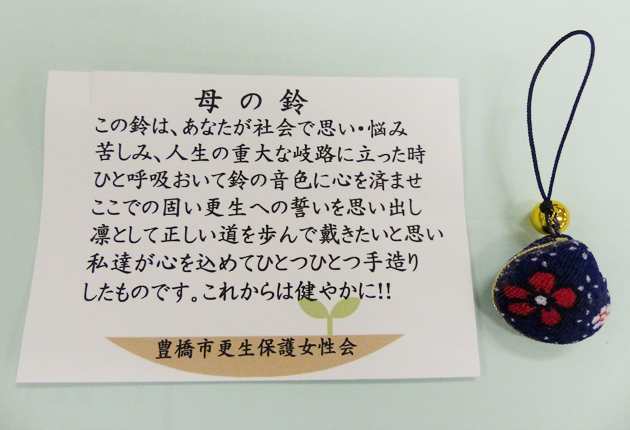 母の鈴
この鈴は、あなたが社会で思い・悩み
苦しみ、人生の重大な岐路に立った時
ひと呼吸おいて鈴の音色に心を済ませ
ここでの固い更生への誓いを思い出し
凛として正しい道を歩んで戴きたいと思い
私達が心を込めてひとつひとつ手造り
したものです。これからは健やかに!!
豊橋市更生保護女性会